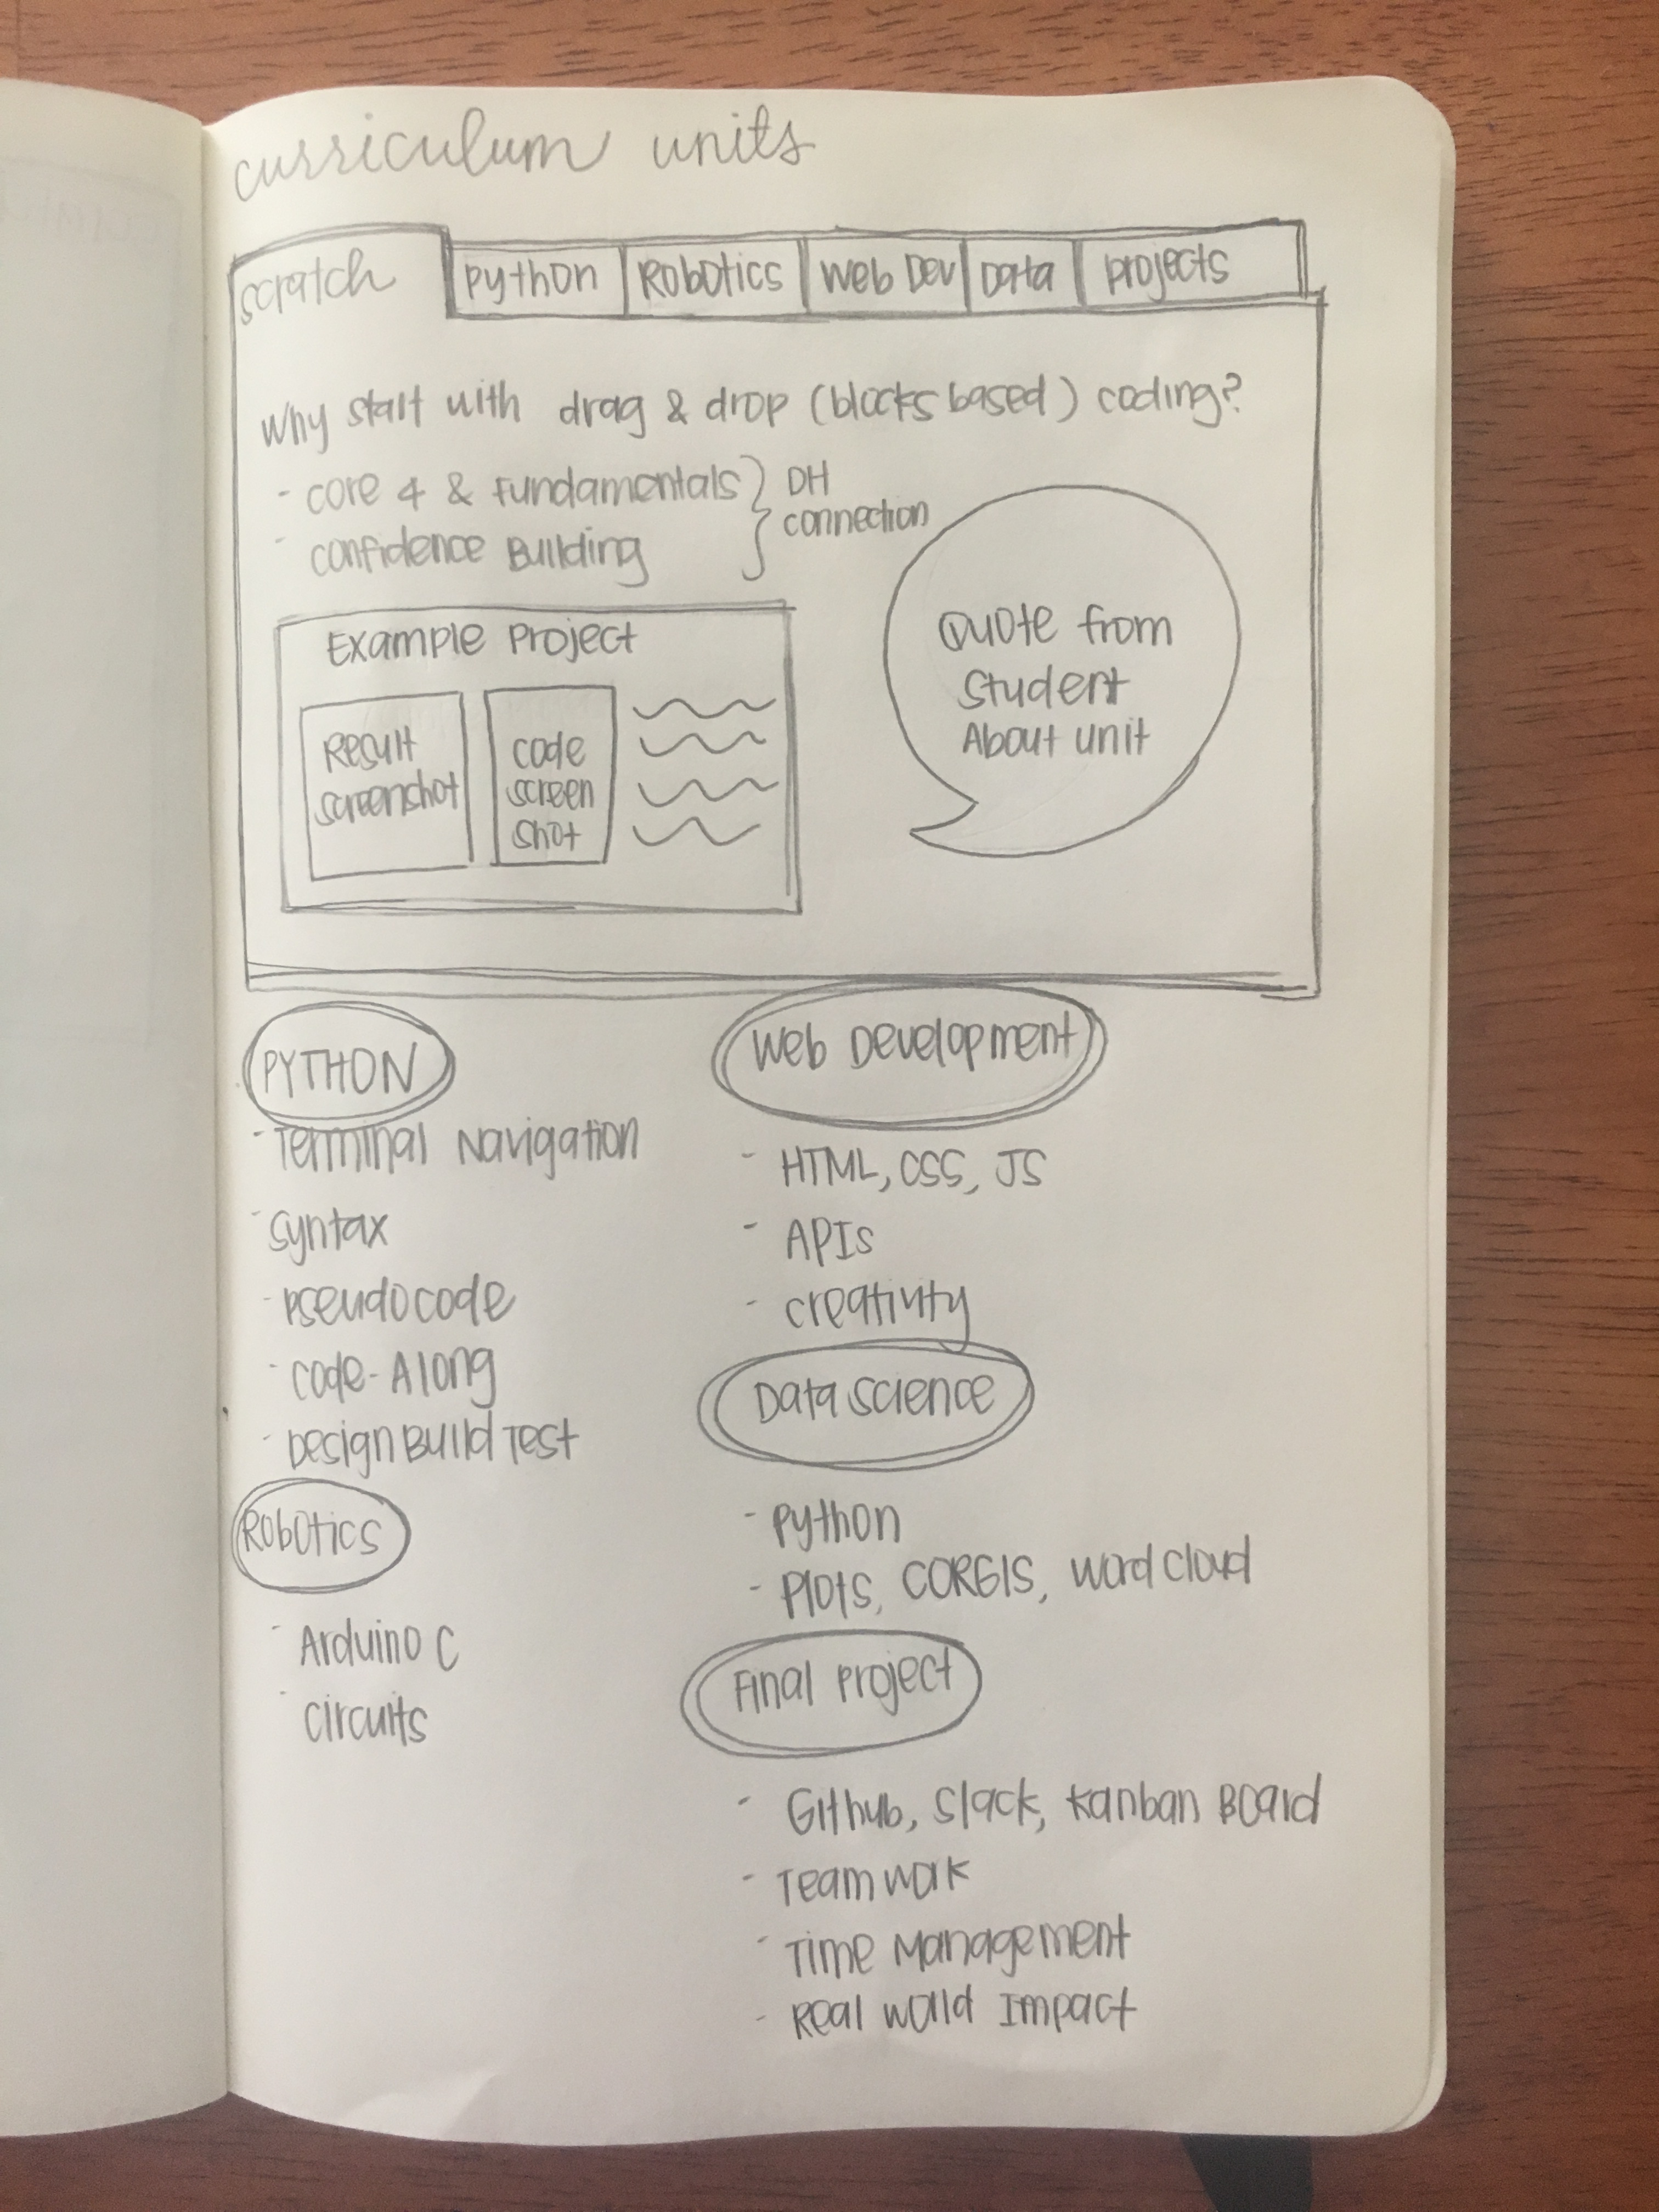 curriculum units
scratch
Python
Robotics
Web Dev
Data
Projects
Why start with drag & drop (blocks based) coding?
- core 4 & Fundamentals
- confidence Building
DH
connection
Example Project
Result
screenshot
code
screen
shot
Quote from
Student
About unit
PYTHON
- Terminal Navigation
- Syntax
- Pseudocode
- Code-Along
- Design Build Test
Robotics
- Arduino C
- Circuits
Web Development
- HTML, CSS, JS
- APIs
- creativity
Data Science
- Python
- Plots, CORGIS, Word Cloud
Final Project
- Github, Slack, Kanban Board
- Team work
- Time Management
- Real World Impact